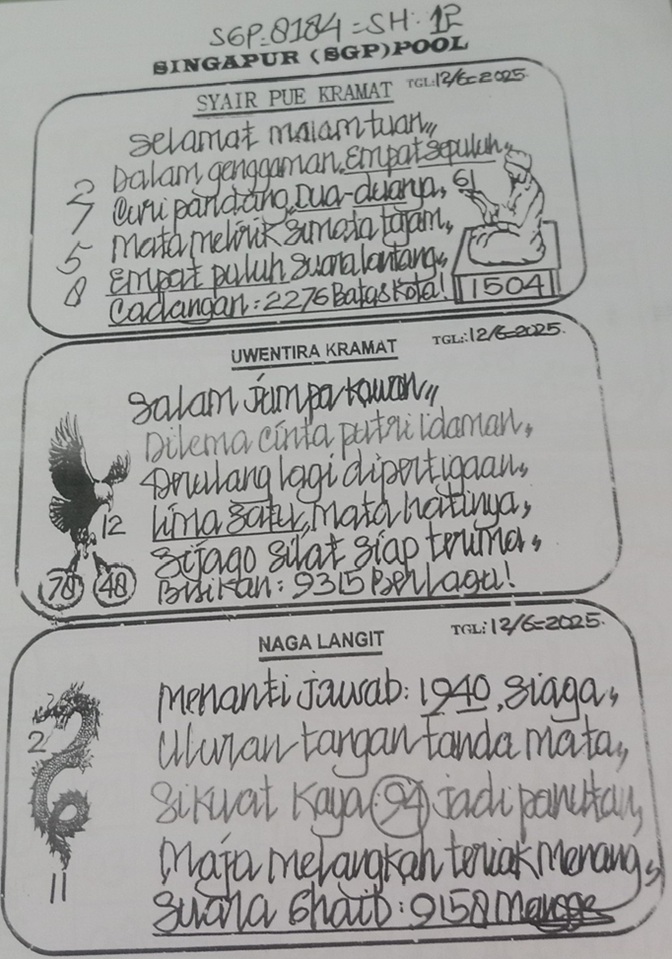 SGP=8184=SH: 12
SINGAPUR (SGP) POOL
SYAIR PUE KRAMAT TGL:12/6=2025.
Selamat malam tuan,,
Dalam genggaman, Empat sepuluh,,
Curi pandang, Dua-duanya,
Mata melirik Simata tajam,,
Empat puluh Suara lantang,,
Cadangan: 2276 Batas Kota!
2
7
5
8
61
1504
UWENTIRA KRAMAT TGL:12/6=2025.
Salam jumpa kawan,,
Dilema cinta putri idaman,
Berulang lagi dipertigaan,
lima satu, mata hatinya,
Sijago silat siap terima,
Bisikan: 9315 Berlaga!
12
78 48
NAGA LANGIT TGL:12/6=2025.
Menanti jawab: 1940, siaga,
Uluran tangan tanda mata,,
Sikuat Kaya 94 jadi panutan,
Maja melangkah teriak Menang,,
Suara Ghaib: 9158
2
11